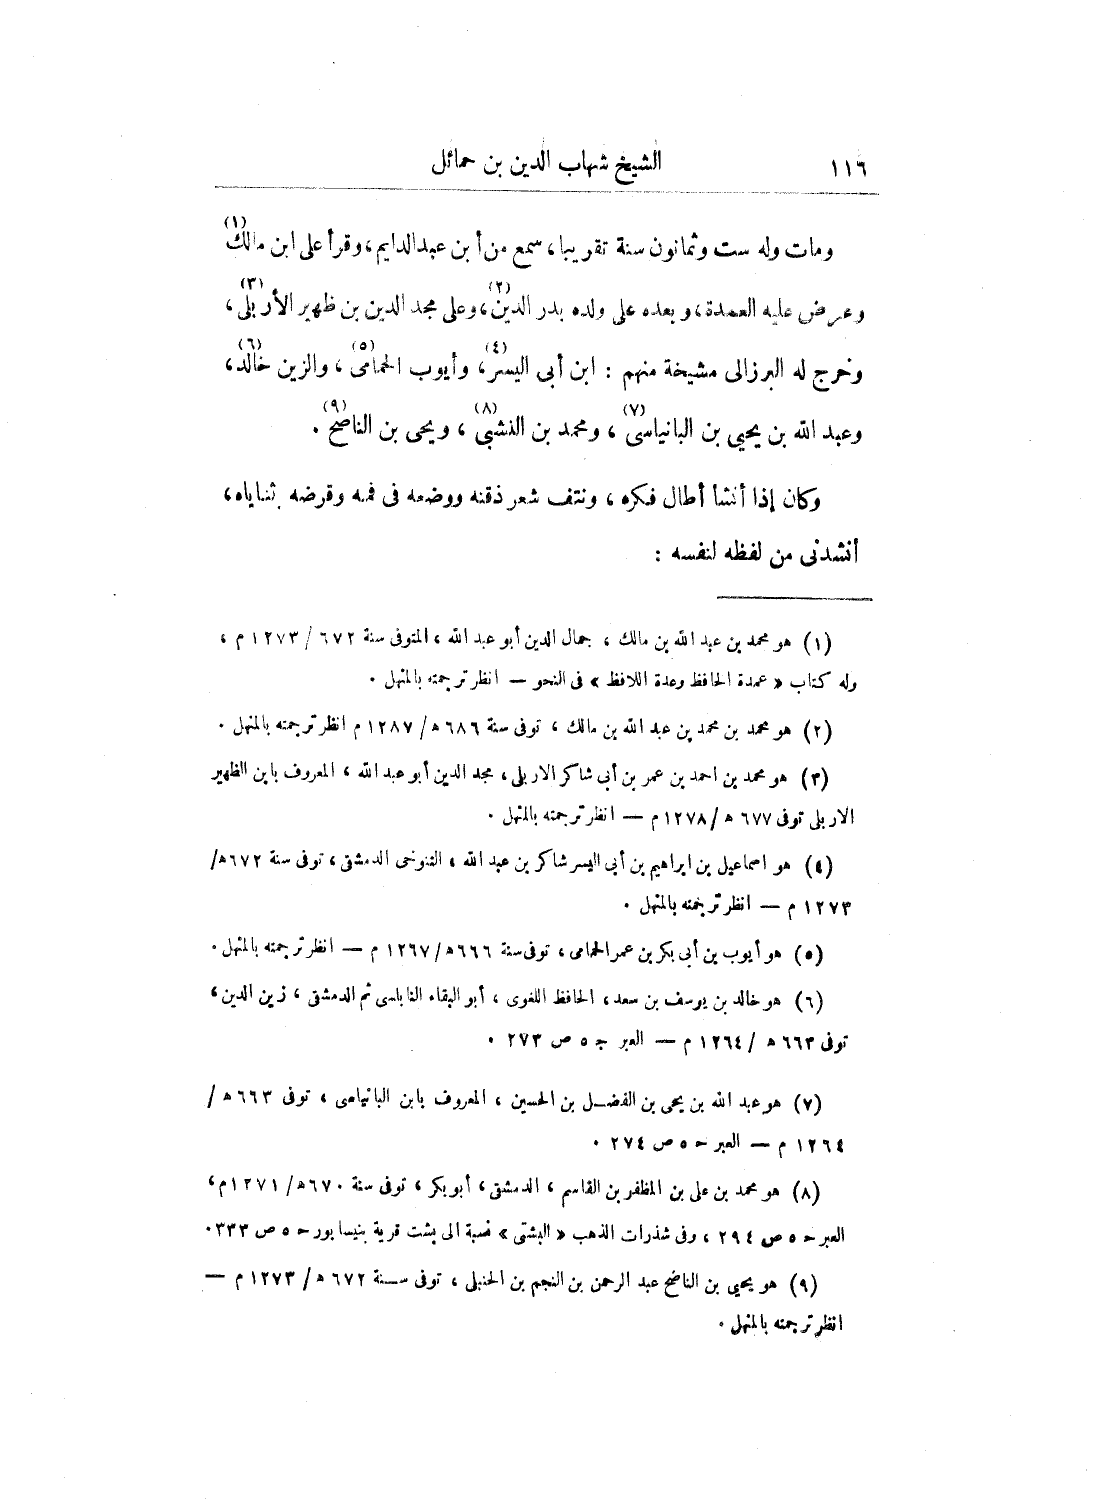 ١١٦ الشيخ شهاب الدين بن حمائل
ومات وله ست وثمانون سنة تقريبا، سمع من أبن عبدالدايم، وقرأ على ابن مالك(١)
وعرض عليه العمدة، وبعده على ولده بدر الدين(٢)، وعلى مجد الدين بن ظهير الأربلى(٣)،
وخرج له البرزالى مشيخة منهم : ابن أبى اليسر(٤)، وأيوب الحمامى(٥) ، والزين خالد(٦)،
وعبد الله بن يحيي بن البانياسى(٧) ، ومحمد بن النشبى(٨) ، ويحى بن الناصح(٩) .
وكان إذا أنشأ أطال فكره ، ونتف شعر ذقنه ووضعه فى فمه وقرضه بثناياه ،
أنشدنى من لفظه لنفسه :
(١) هو محمد بن عبد الله بن مالك ، جمال الدين أبو عبد الله ، المتوفى سنة ٦٧٢ / ١٢٧٣ م ،
وله كتاب « عمدة الحافظ وعدة اللافظ » فى النحو — انظر ترجمته بالمنهل .
(٢) هو محمد بن محمد بن عبد الله بن مالك ، توفى سنة ٦٨٦ ه/ ١٢٨٧ م انظر ترجمته بالمنهل .
(٣) هو محمد بن احمد بن عمر بن أبى شاكر الاربلى ، مجد الدين أبو عبد الله ، المعروف باين الظهير
الاربلى توفى ٦٧٧ ه /١٢٧٨ م — انظر ترجمته بالمنهل .
(٤) هو اسماعيل بن ابراهيم بن أبى اليسر شاكر بن عبد الله ، التنوخى الدمشقى ، توفى سنة ٦٧٢ه/
١٢٧٣ م — انظر ترجمته بالمنهل .
(٥) هو أيوب بن أبى بكر بن عمر الحمامى ، توفى سنة ٦٦٦ه/ ١٢٦٧ م — انظر ترجمته بالمنهل .
(٦) هو خالد بن يوسف بن سعد ، الحافظ اللغوى ، أبو البقاء النابلسى ثم الدمشقى ، زين الدين ،
توفى ٦٦٣ ه / ١٢٦٤ م — العبر ج ٥ ص ٢٧٣ .
(٧) هو عبد الله بن يحى بن الفضل بن الحسين ، المعروف بابن البانياسى ، توفى ٦٦٣ ه /
١٢٦٤ م — العبر ح ٥ ص ٢٧٤ .
(٨) هو محمد بن على بن المظفر بن القاسم ، الدمشقى ، أبو بكر ، توفى سنة ٦٧٠ه/ ١٢٧١م ،
العبر ح ٥ ص ٢٩٤ ، وفى شذرات الذهب « البشتى » نسبة الى بشت قرية بنيسابور ح ٥ ص ٣٣٣ .
(٩) هو يحيى بن الناصح عبد الرحمن بن النجم بن الحنبلى ، توفى سنة ٦٧٢ ه/ ١٢٧٣ م —
انظر ترجمته بالمنهل .